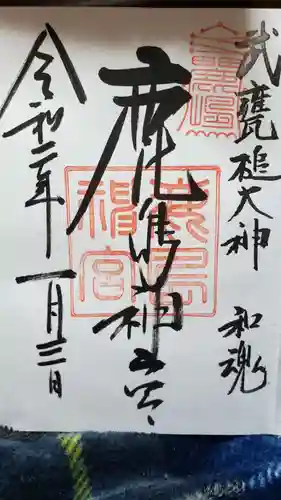 武甕槌大神 和魂
鹿島神宮
令和二年 一月三日
鹿島神宮